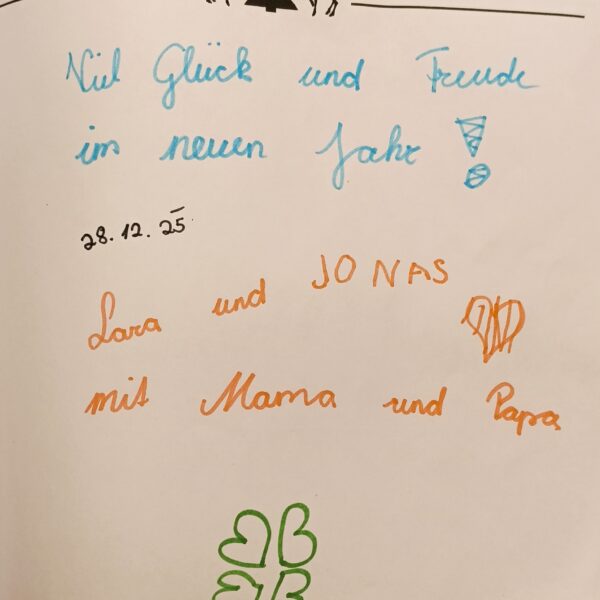 Viel Glück und Freude
im neuen Jahr!
28.12.25
Lara und JONAS
mit Mama und Papa